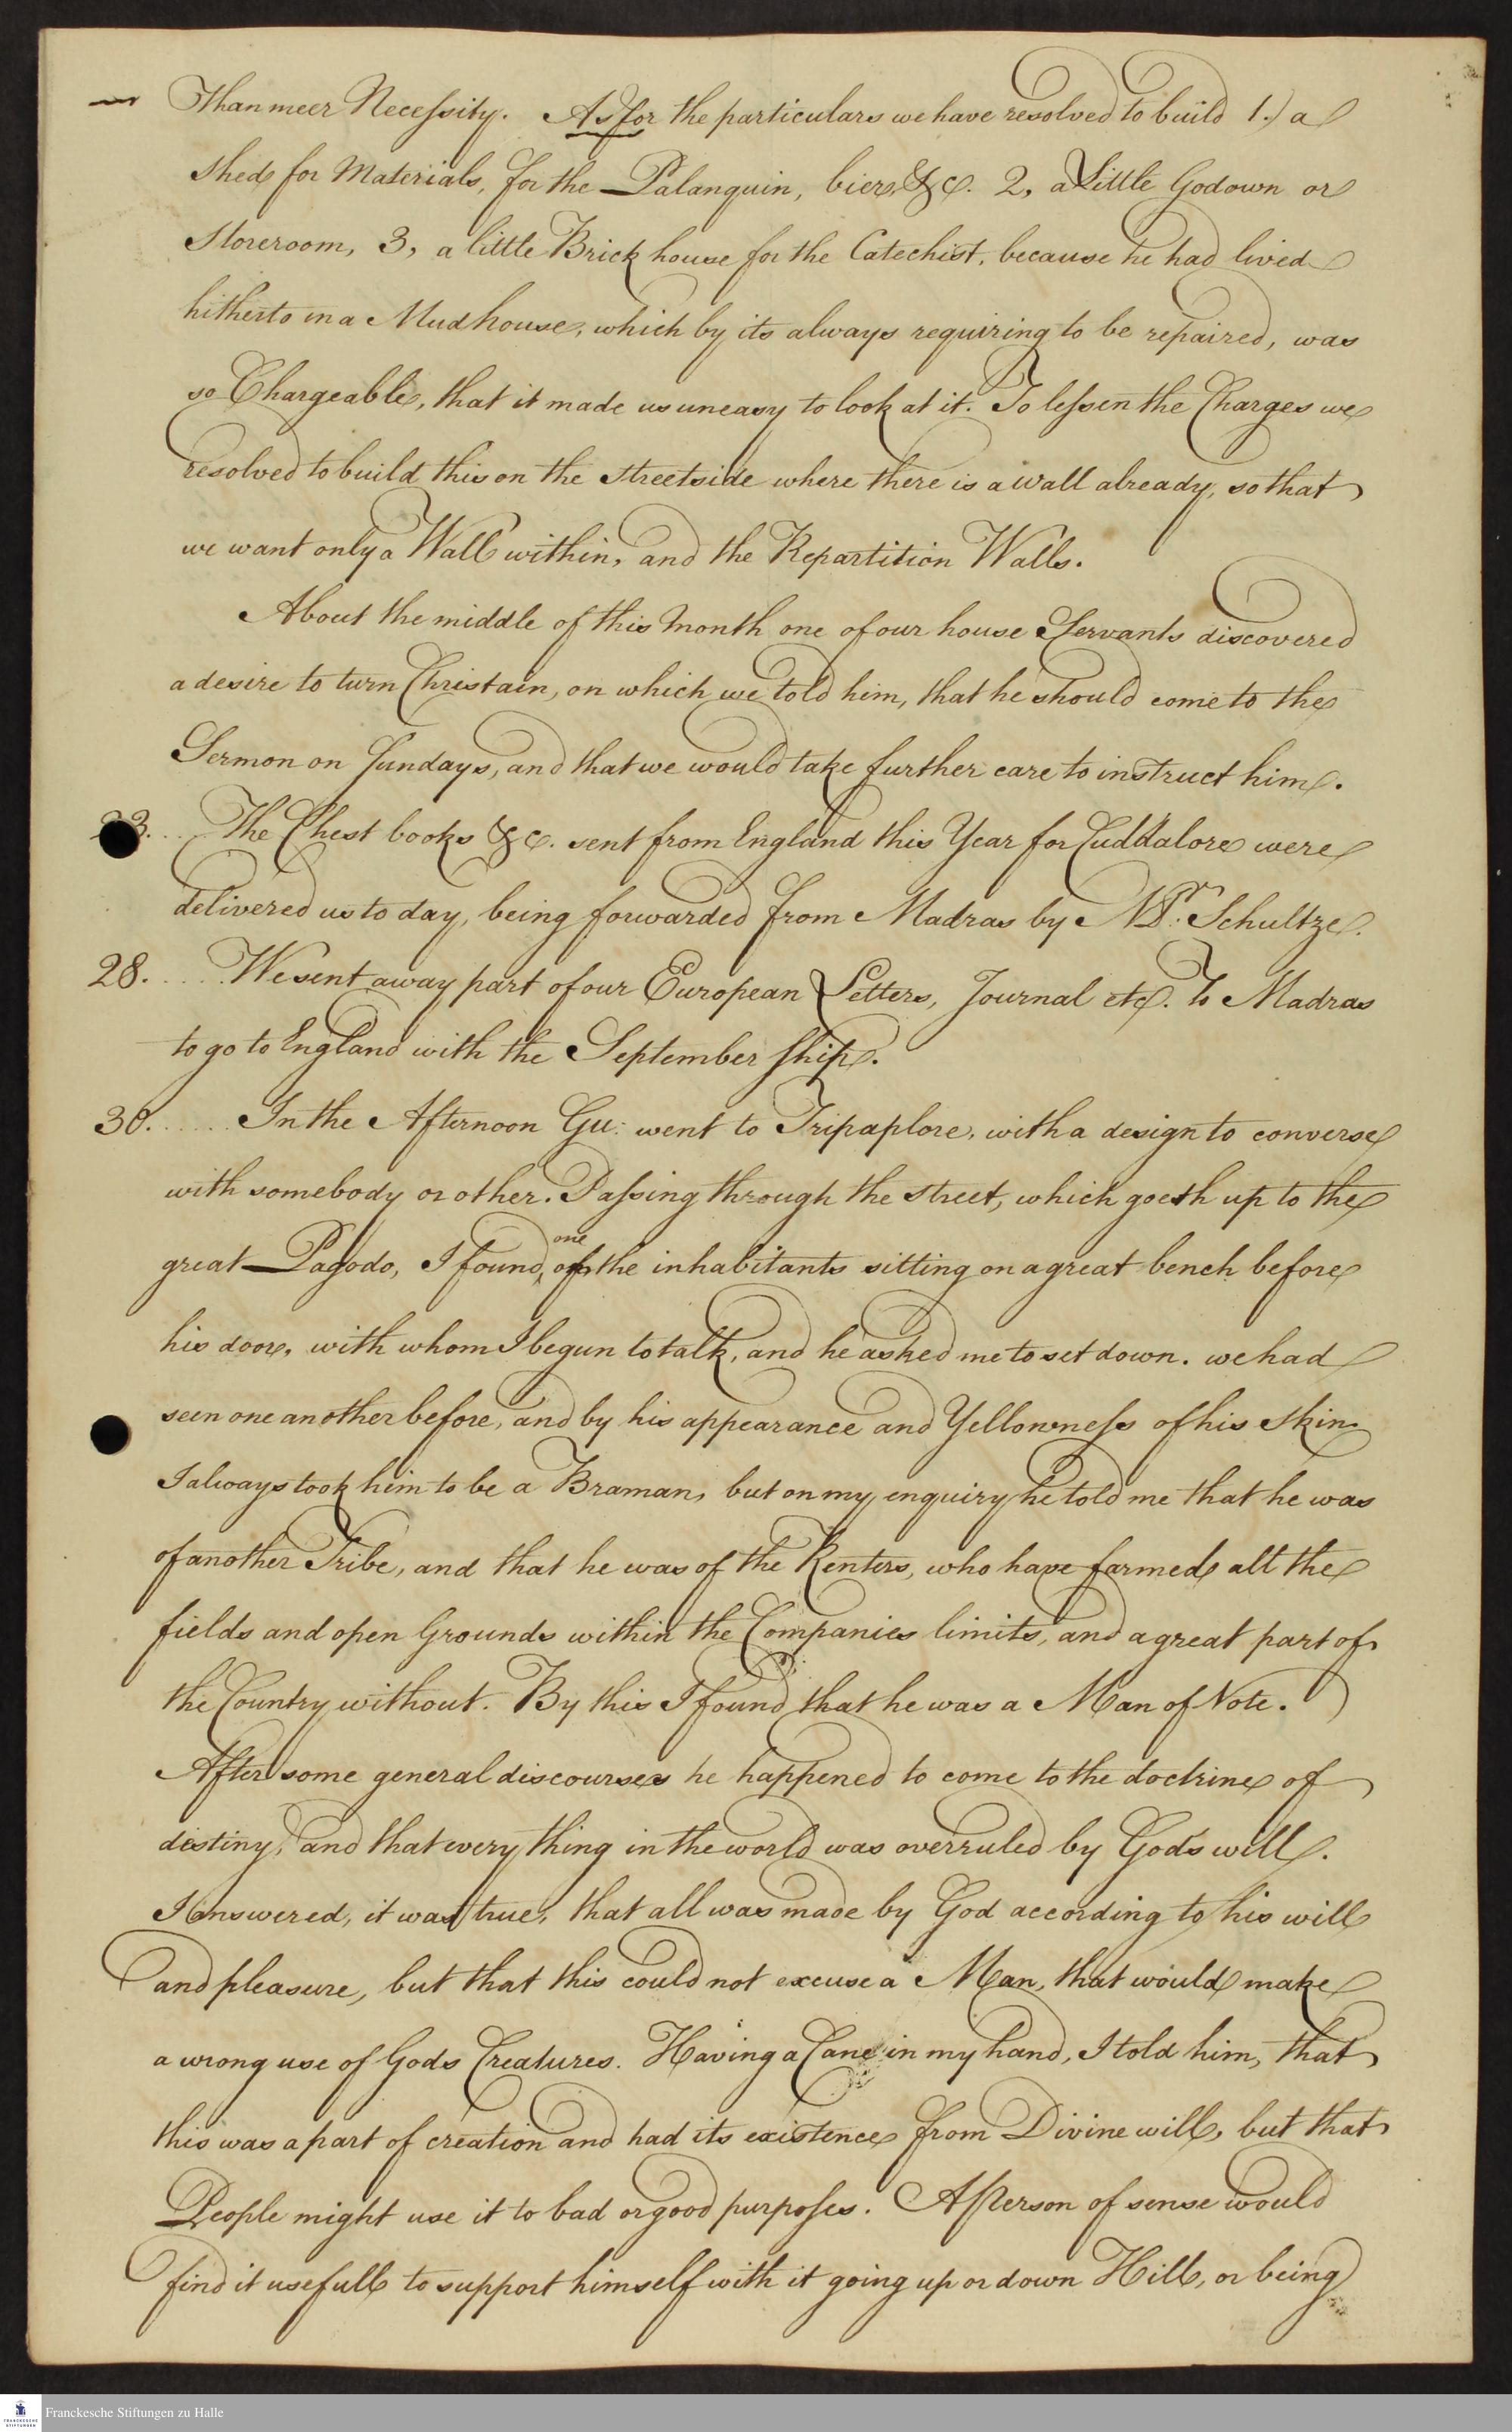 Than meer Necessity. As for the particulars we have resolved to build 1.) a
shed for Materials, for the Palanquin, biers, &c. 2, a Little Godown or
Storeroom, 3, a little Brick house for the Catechist, because he had lived
hitherto in a Mudhouse, which by its always requiring to be repaired, was
so Chargeable, that it made us uneasy to look at it. To lessen the Charges we
resolved to build this on the streetside where there is a wall already, so that
we want only a Wall within, and the Repartition Walls.
About the middle of this Month one of our house Servants discovered
a desire to turn Christain, on which we told him, that he should come to the
Sermon on Sundays, and that we would take further care to instruct him.
23. The Chest books &c. sent from England this Year for Cuddalore were
delivered us to day, being forwarded from Madras by Mr. Schultze.
28. We sent away part of our European Letters, Journal etc. To Madras
to go to England with the September Ship.
30. In the Afternoon Gu: went to Tripaplore, with a design to converse
with somebody or other. Passing through the street, which goeth up to the
great Pagodo, I found, one of the inhabitants sitting on a great bench before
his door, with whom I begun to talk, and he asked me to set down. we had
seen one another before, and by his appearance and Yellowness of his skin
I always took him to be a Braman, but on my enquiry he told me that he was
of another Tribe, and that he was of the Renters, who have farmed all the
fields and open Grounds within the Companies limits, and a great part of
the Country without. By this I found that he was a Man of Note.
After some general discourses he happened to come to the doctrine of
destiny, and that every thing in the world was overruled by God's will.
I answered, it was true, that all was made by God according to his will
and pleasure, but that this could not excuse a Man, that would make
a wrong use of Gods Creatures. Having a Cane in my hand, I told him, that
this was a part of creation and had its existence from Divine will, but that
People might use it to bad or good purposes. A Person of sense would
find it usefull to support himself with it going up or down Hill, or being
Franckesche Stiftungen zu Halle